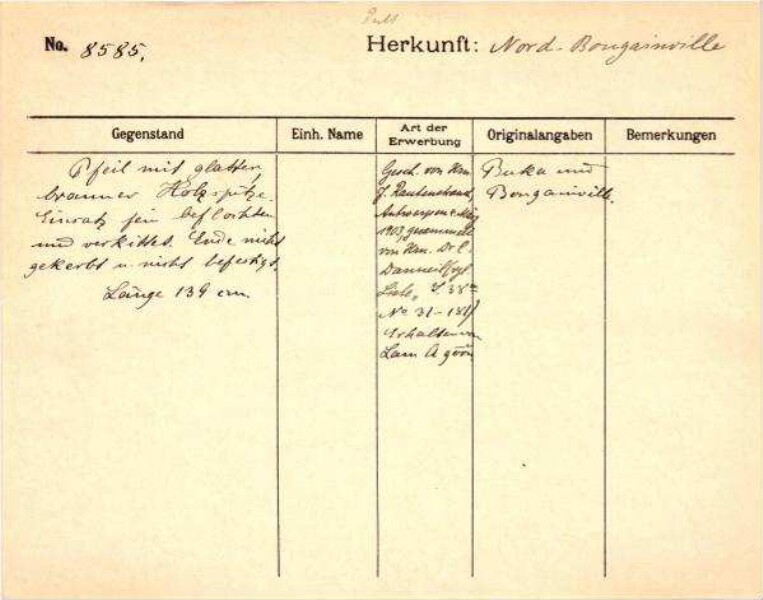 No. 8585.
Herkunft: Nord-Bougainville
Gegenstand
Einh. Name
Art der Erwerbung
Originalangaben
Bemerkungen
Pfeil mit glatter,
brauner Holzspitze.
Einsatz fein beflochten
und verkittet. Ende nicht
gekerbt u. nicht befestigt.
Länge 139 cm.
Gesch. von Hrn.
J. Rautenstrauch,
Antwerpen
1903, gesammelt
von Hrn. Dr. C.
Danneil
Liste
No 31-
Erhalten
Buka und
Bougainville.